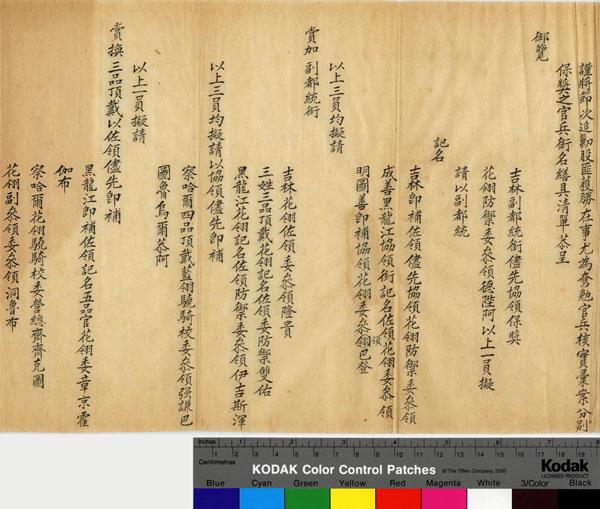 謹將節次追勦股匪獲勝在事尤為奮勉官兵核實彙案分別
保獎之官兵銜名繕具清單恭呈
御覽
吉林副都統銜儘先協領保獎
花翎防禦委叅領德陞阿以上一員擬
請以副都統
記名
吉林即補佐領儘先協領花翎防禦委叅領
成善黑龍江協領銜記名佐領花翎委叅領
明圖善即補協領花翎委叅領巴登
以上三員均擬請
賞加副都統銜
吉林花翎佐領委叅領隆貴
三姓三品頂戴花翎記名佐領委防禦雙佑
黑龍江花翎記名佐領防禦委叅領伊吉斯渾
以上三員均擬請以協領儘先即補
察哈爾四品頂戴藍翎驍騎校委叅領强謙巴
圖魯烏爾恭阿
以上一員擬請
賞換三品頂戴以佐領儘先即補
黑龍江即補佐領記名五品官花翎委章京霍
伽布
察哈爾花翎驍騎校委營總齊齊克圖
花翎副叅領委叅領洞魯布
Inches 1 2 3 4 5 6 7 8
Centimetres 1 2 3 4 5 6 7 8 9 10 11 12 13 14 15 16 17 18 19
KODAK Color Control Patches
© The Tiffen Company, 2000
Kodak
LICENSED PRODUCT
Blue Cyan Green Yellow Red Magenta White 3/Color Black